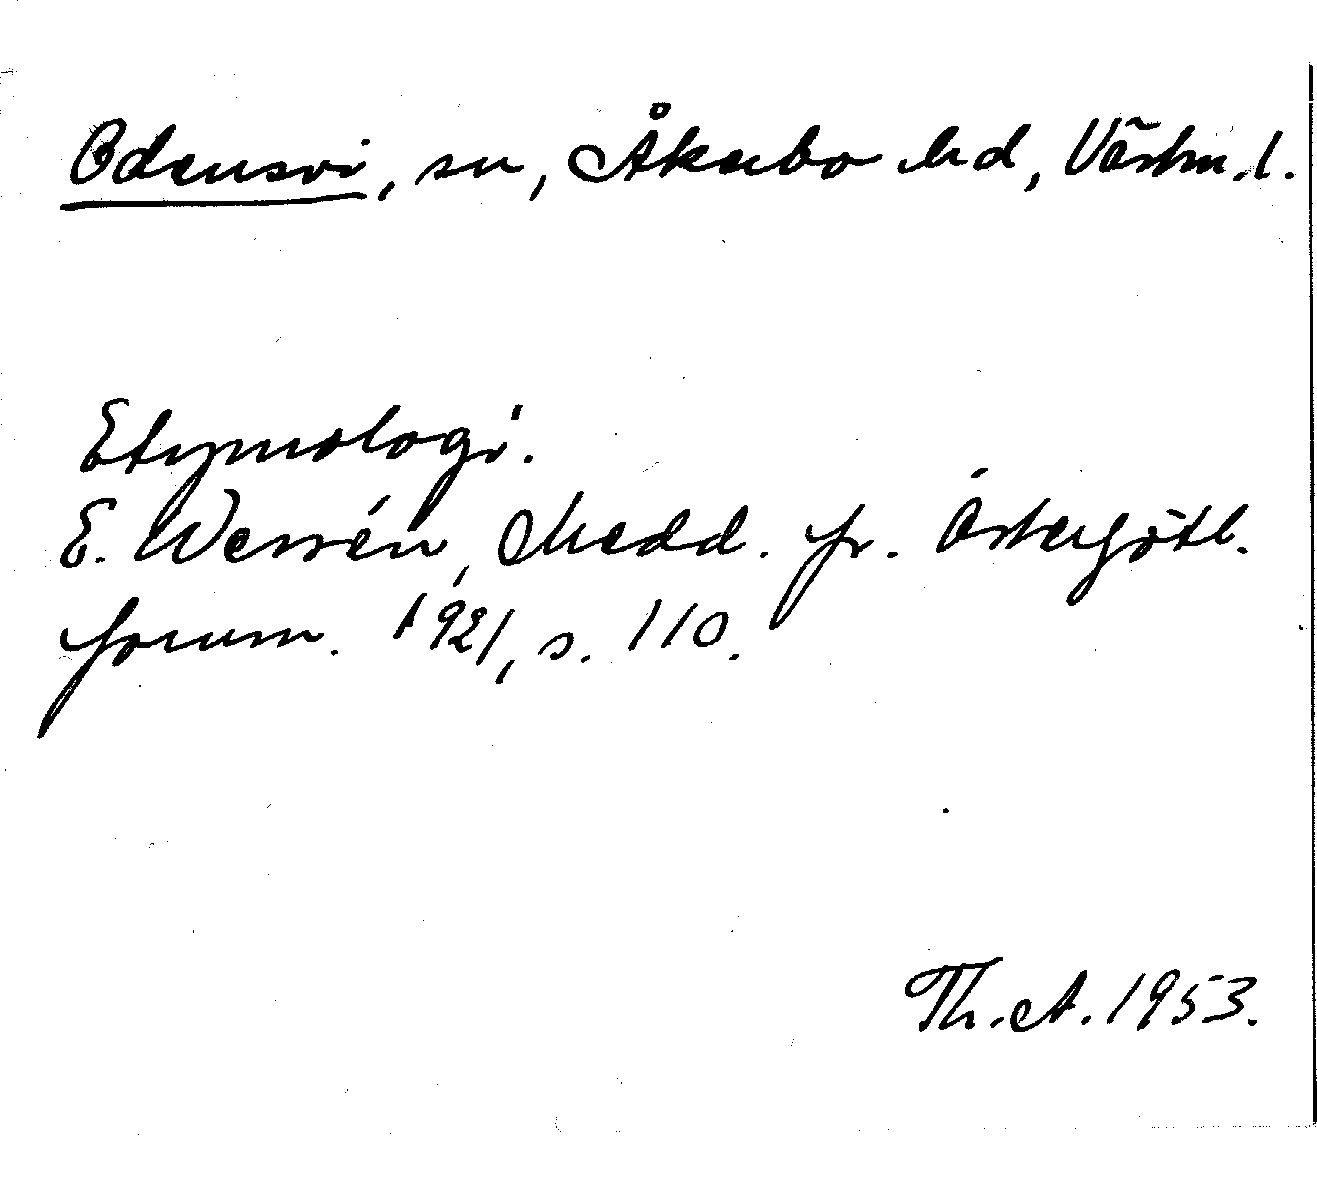 Odensvi, sn, Åkerbo hd, Västm. l.
Etymologi.
E. Wessén, Medd. fr. Östergötl.
fornm. 1921, s. 110.
Th. A. 1953.